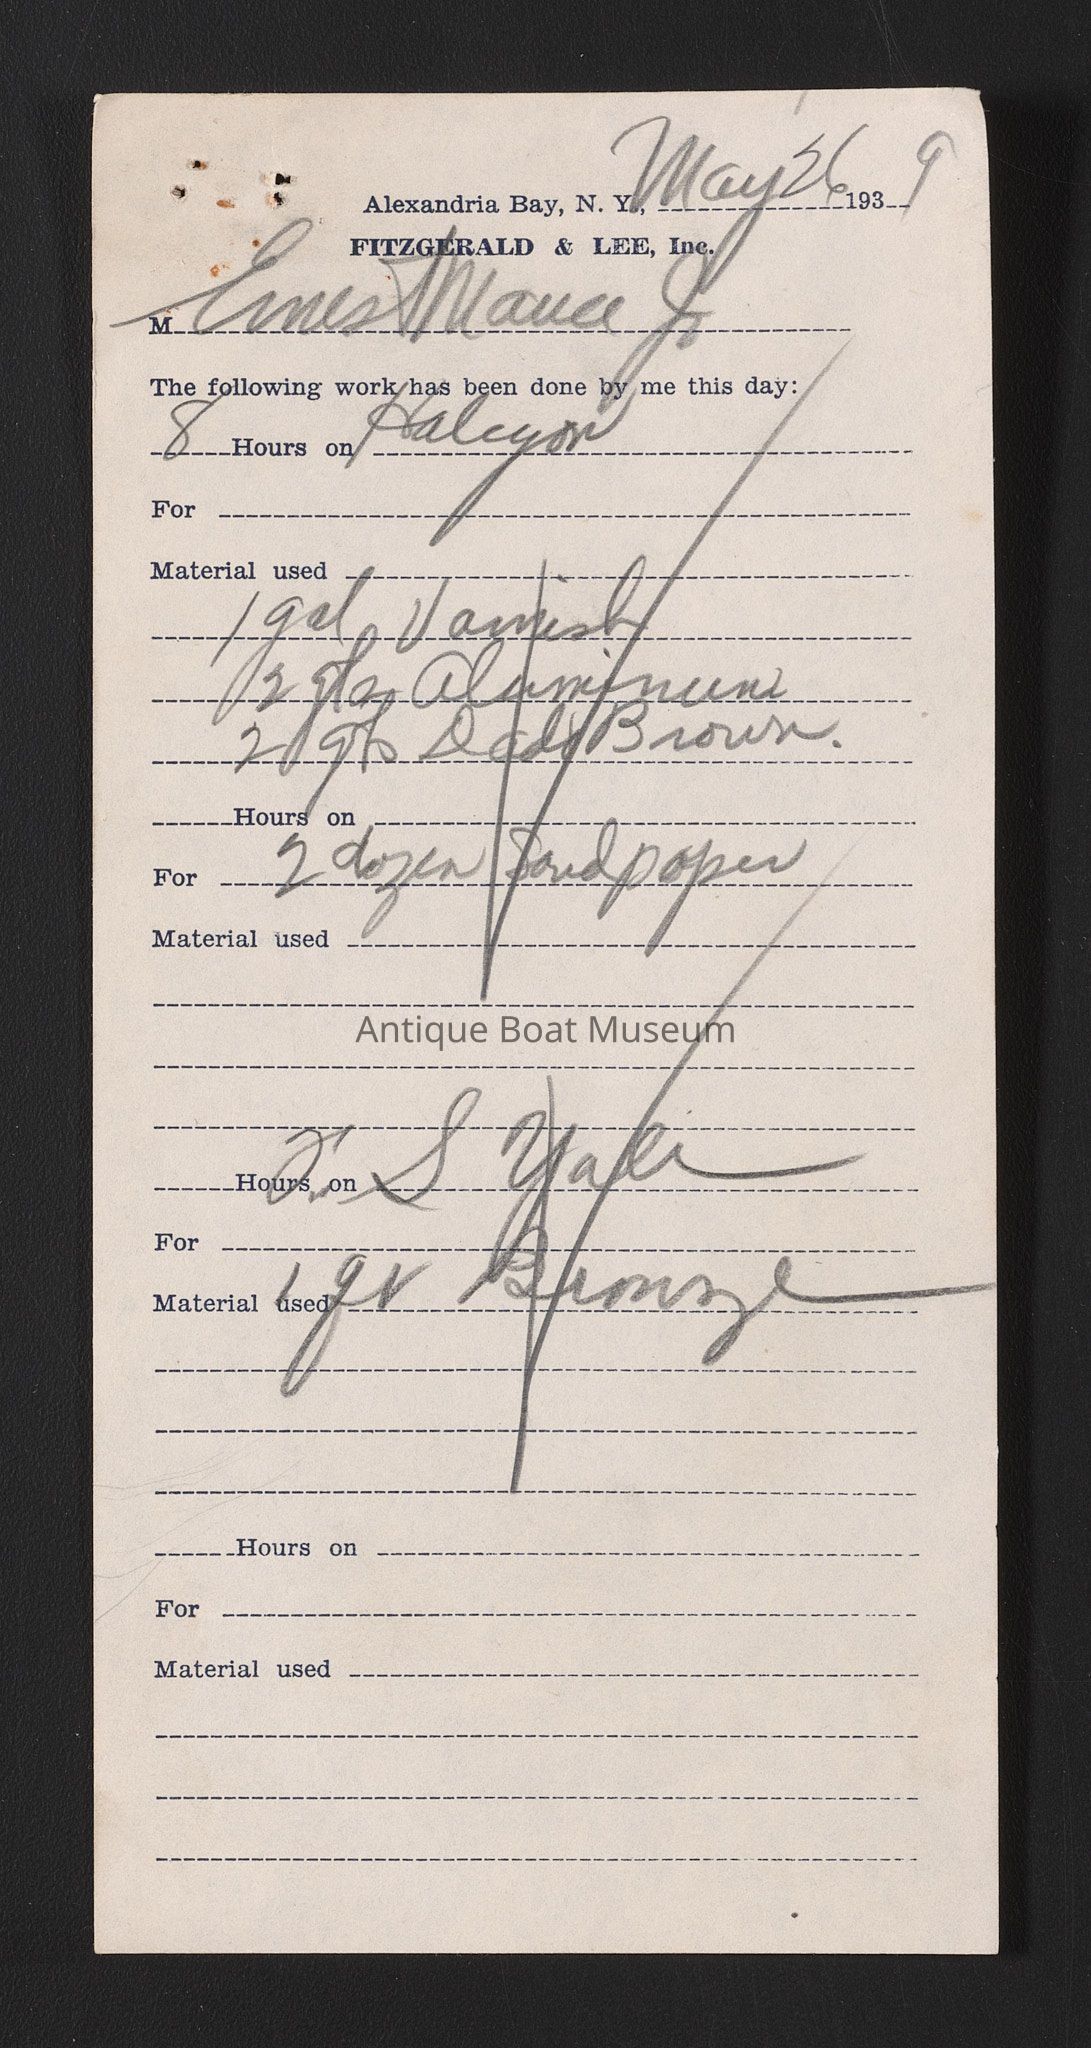 Alexandria Bay, N. Y., May 26 1939
FITZGERALD & LEE, Inc.
M Ernest Mance Jr
The following work has been done by me this day:
8 Hours on Halcyon
For
Material used
1 gal Varnish
2 qts Aluminum
2 qts Brown.
Hours on
For 2 dozen Sandpaper
Material used
Antique Boat Museum
Hours on S Yale
For
Material used 1 qt Bronze
Hours on
For
Material used